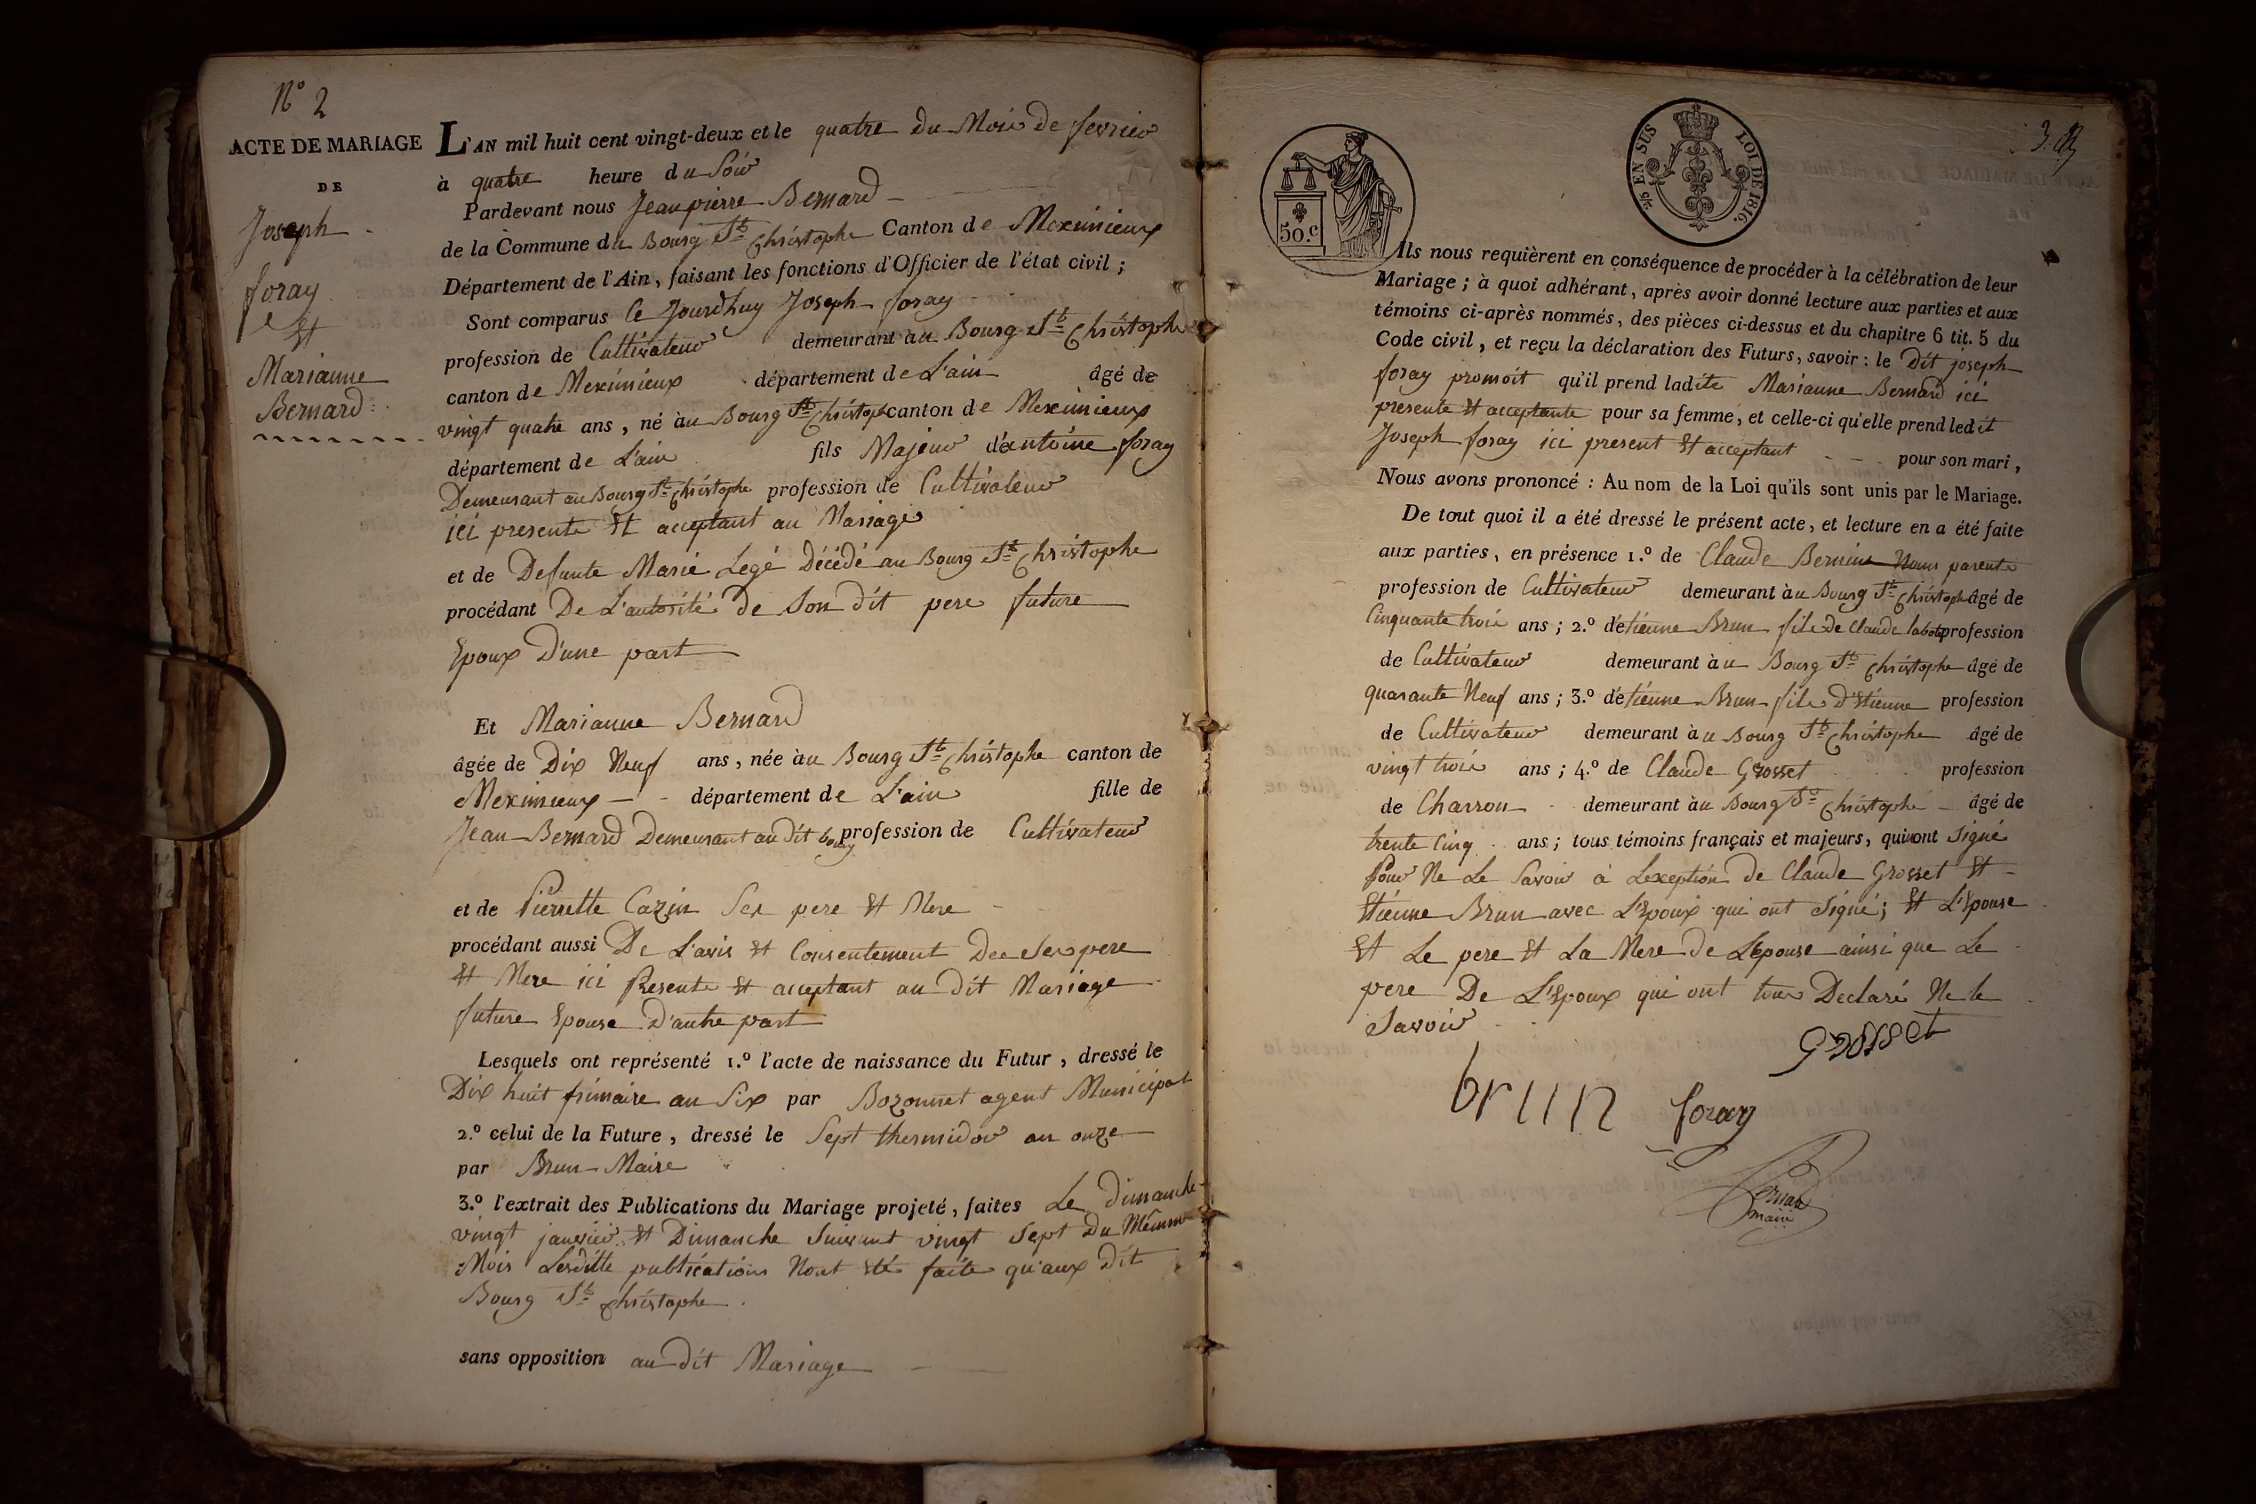 N.º 2
ACTE DE MARIAGE
DE
Joseph
foray
Et
Marianne
Bernard
L'AN mil huit cent vingt-deux et le quatre du Mois de fevrier
à quatre heure du Soir
Pardevant nous Jeanpierre Bernard
de la Commune du Bourg St Christophe Canton de Meximieux
Département de l'Ain, faisant les fonctions d'Officier de l'état civil ;
Sont comparus Ce Jourdhuy Joseph foray
profession de Cultivateur demeurant au Bourg St Christophe
canton de Meximieux département de L'ain âgé de
vingt quatre ans, né au Bourg St Christophe canton de Meximieux
département de L'ain fils Majeur d'antoine foray
Demeurant au Bourg St Christophe profession de Cultivateur
ici presente Et acceptant au Mariage
et de Defunte Marie Legé Décédé au Bourg St Christophe
procédant De L'autorité de Son dit pere future
Epoux D'une part
Et Marianne Bernard
âgée de Dix Neuf ans, née au Bourg St Christophe canton de
Meximieux département de L'ain fille de
Jean Bernard Demeurant au dit bourg profession de Cultivateur
et de Pierrette Cazin Ses pere Et Mere
procédant aussi De L'avis Et Consentement Des Ses pere
Et Mere ici Presents Et acceptant au Dit Mariage
future Epouse D'autre part
Lesquels ont représenté 1.º l'acte de naissance du Futur, dressé le
Dix huit frimaire an Six par Bozonnet agent Municipal
2.º celui de la Future, dressé le Sept thermidor an onze
par Brun Maire
3.º l'extrait des Publications du Mariage projeté, faites Le Dimanche
vingt janvier Et Dimanche Suivant vingt Sept Du Mêmme
Mois Lesditte publications Nont Eté faite qu'aux Dit
Bourg St Christophe
sans opposition au dit Mariage
50.c
5/6 EN SUS LOI DE 1816.
3.
Ils nous requièrent en conséquence de procéder à la célébration de leur
Mariage ; à quoi adhérant, après avoir donné lecture aux parties et aux
témoins ci-après nommés, des pièces ci-dessus et du chapitre 6 tit. 5 du
Code civil, et reçu la déclaration des Futurs, savoir : le Dit joseph
foray promoit qu'il prend ladite Marianne Bernard ici
presente Et acceptante pour sa femme, et celle-ci qu'elle prend ledit
Joseph foray ici present Et acceptant pour son mari,
Nous avons prononcé : Au nom de la Loi qu'ils sont unis par le Mariage.
De tout quoi il a été dressé le présent acte, et lecture en a été faite
aux parties, en présence 1.º de Claude parents
profession de Cultivateur demeurant au Bourg St Christophe âgé de
Cinquante trois ans ; 2.º d'etienne Brun fils de Claude profession
de Cultivateur demeurant au Bourg St Christophe âgé de
quarante Neuf ans ; 3.º d'etienne Brun fils d'Etienne profession
de Cultivateur demeurant au Bourg St Christophe âgé de
vingt trois ans ; 4.º de Claude Grosset profession
de Charron demeurant au Bourg St Christophe âgé de
trente Cinq ans ; tous témoins français et majeurs, qui ont Signé
Pour Ne Le Savoir à Lexeption de Claude Grosset Et
Etienne Brun avec L'Epoux qui ont Signé; Et L'Epouse
Et Le pere Et La Mere de L'Epouse ainsi que Le
pere De L'Epoux qui ont tous Declaré Ne le
Savoir
Grosset
brun
foray
Bernard
maire